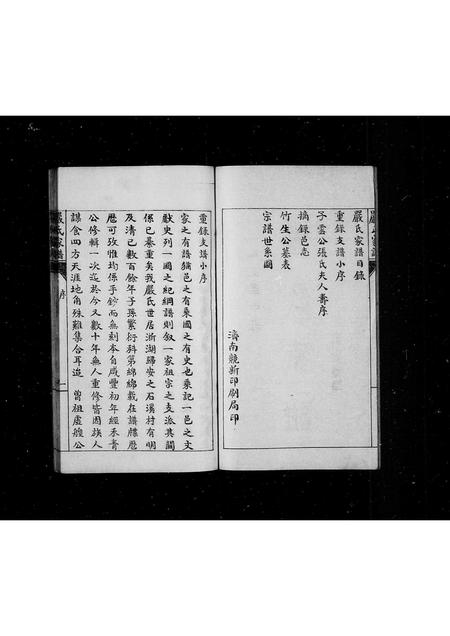 嚴氏家譜
嚴氏家譜目錄
重錄支譜小序
子雲公張氏夫人壽序
摘錄邑志
竹生公墓表
宗譜世系圖
濟南競新印刷局印
重錄支譜小序
家之有譜猶邑之有乘國之有史也乘記一邑之文
獻史列一國之紀綱譜則叙一家祖宗之支派其關
係已綦重矣我嚴氏世居浙湖歸安之石溪村有明
及清已數百餘年子孫繁衍科第綿綿載在譜牒歷
歷可攷惟均係手鈔而無刻本自咸豐初年經禾壽
公修輯一次迄於今又數十年無人重修皆因族人
謀食四方天涯地角殊難集合耳迨 曾祖虛艘公
嚴氏家譜
序
一